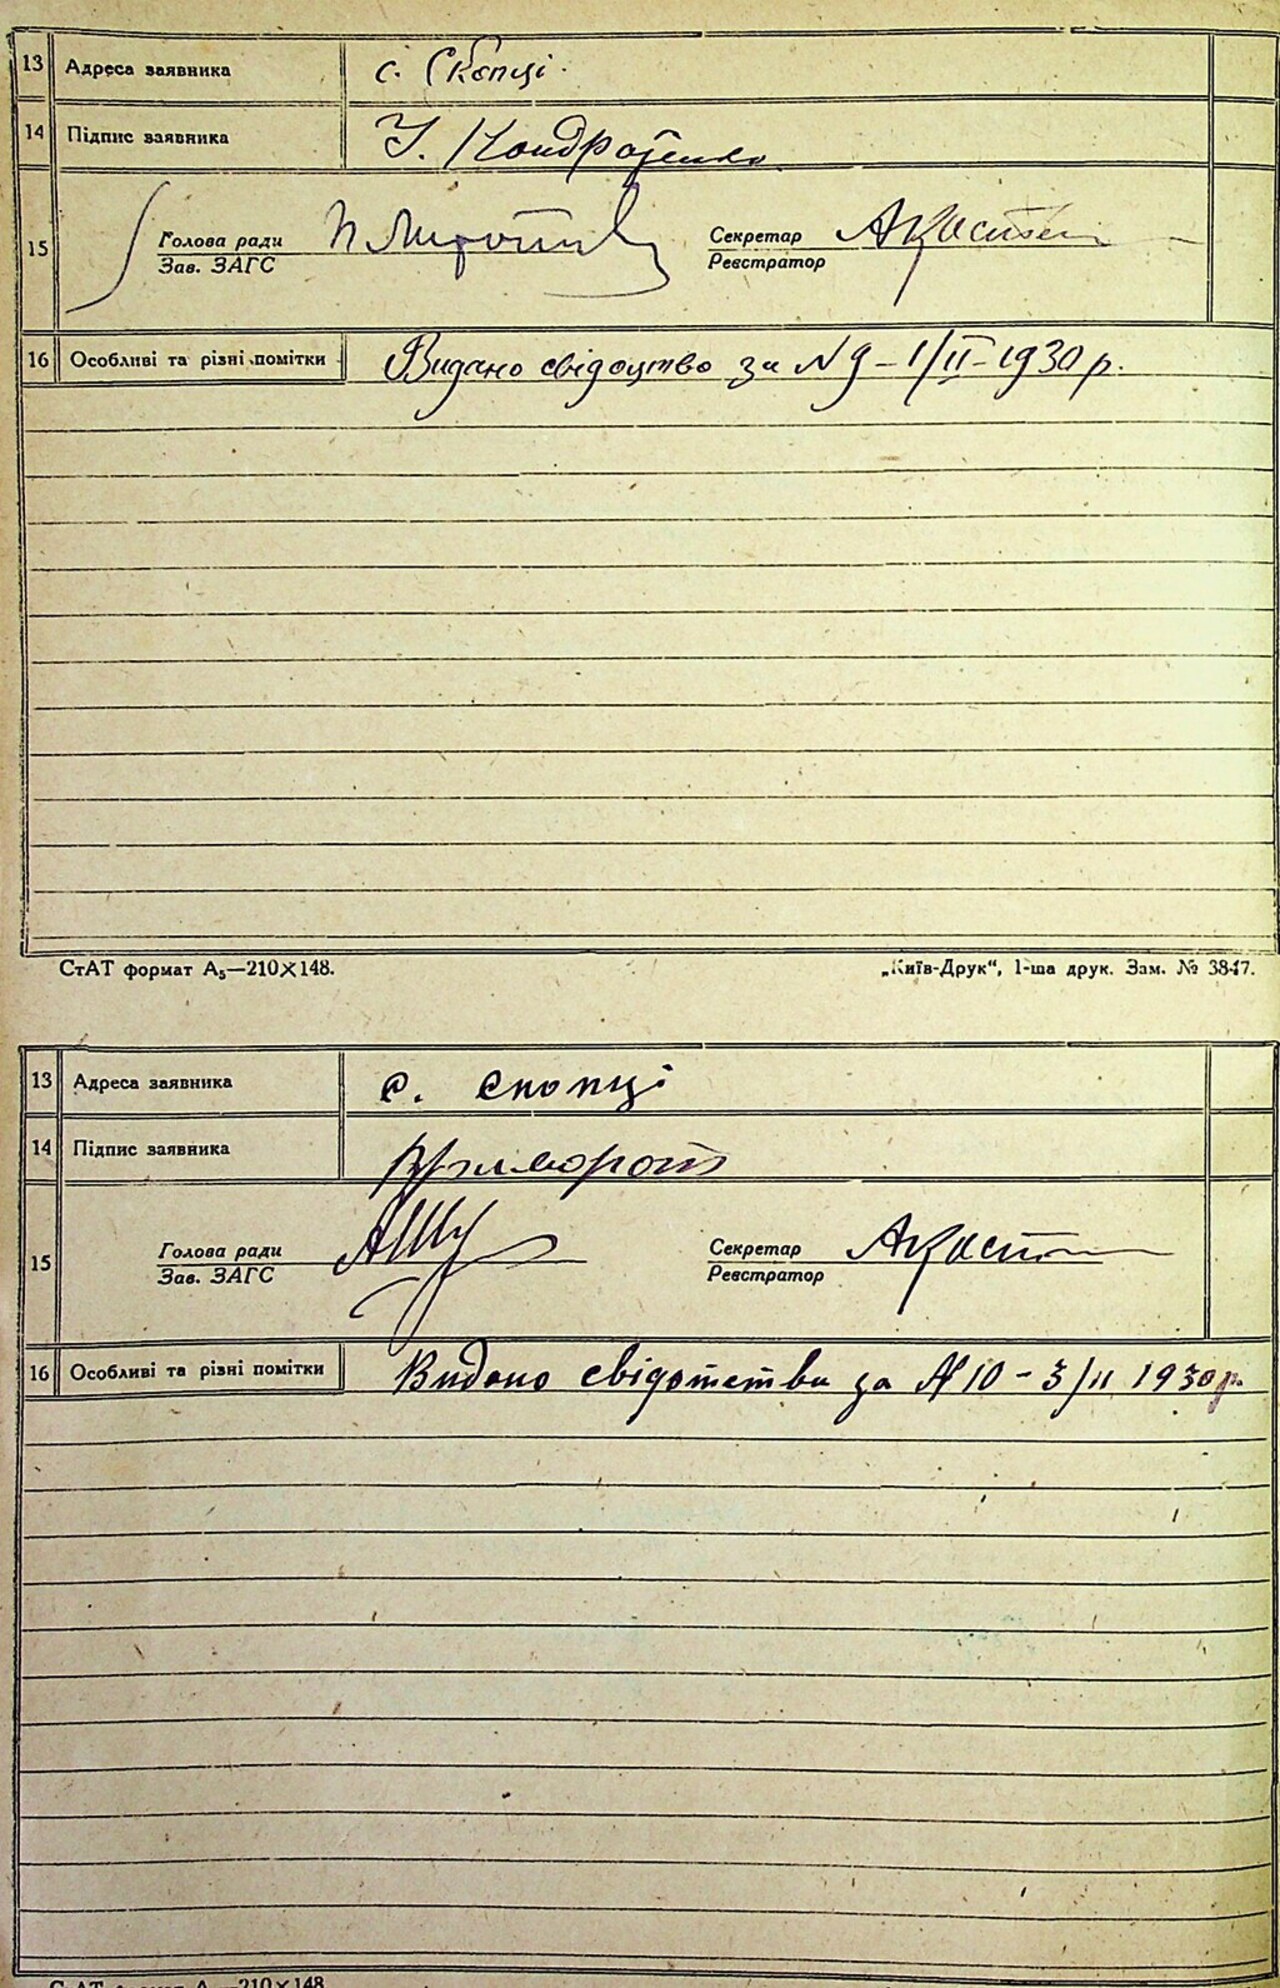 13 Адреса заявника с. Скопці
14 Підпис заявника У. Кондратенко
15 Голова ради Секретар
Зав. ЗАГС Реєстратор
16 Особливі та різні помітки Видано свідоцтво за N 9 – 1/II – 1930 р.
СтАТ формат А₅—210×148. „Київ-Друк“, 1-ша друк. Зам. № 3847.
13 Адреса заявника с. Скопці
14 Підпис заявника
15 Голова ради Секретар
Зав. ЗАГС Реєстратор
16 Особливі та різні помітки Видано свідотство за № 10 – 3/II 1930 р.
СтАТ формат А₅—210×148